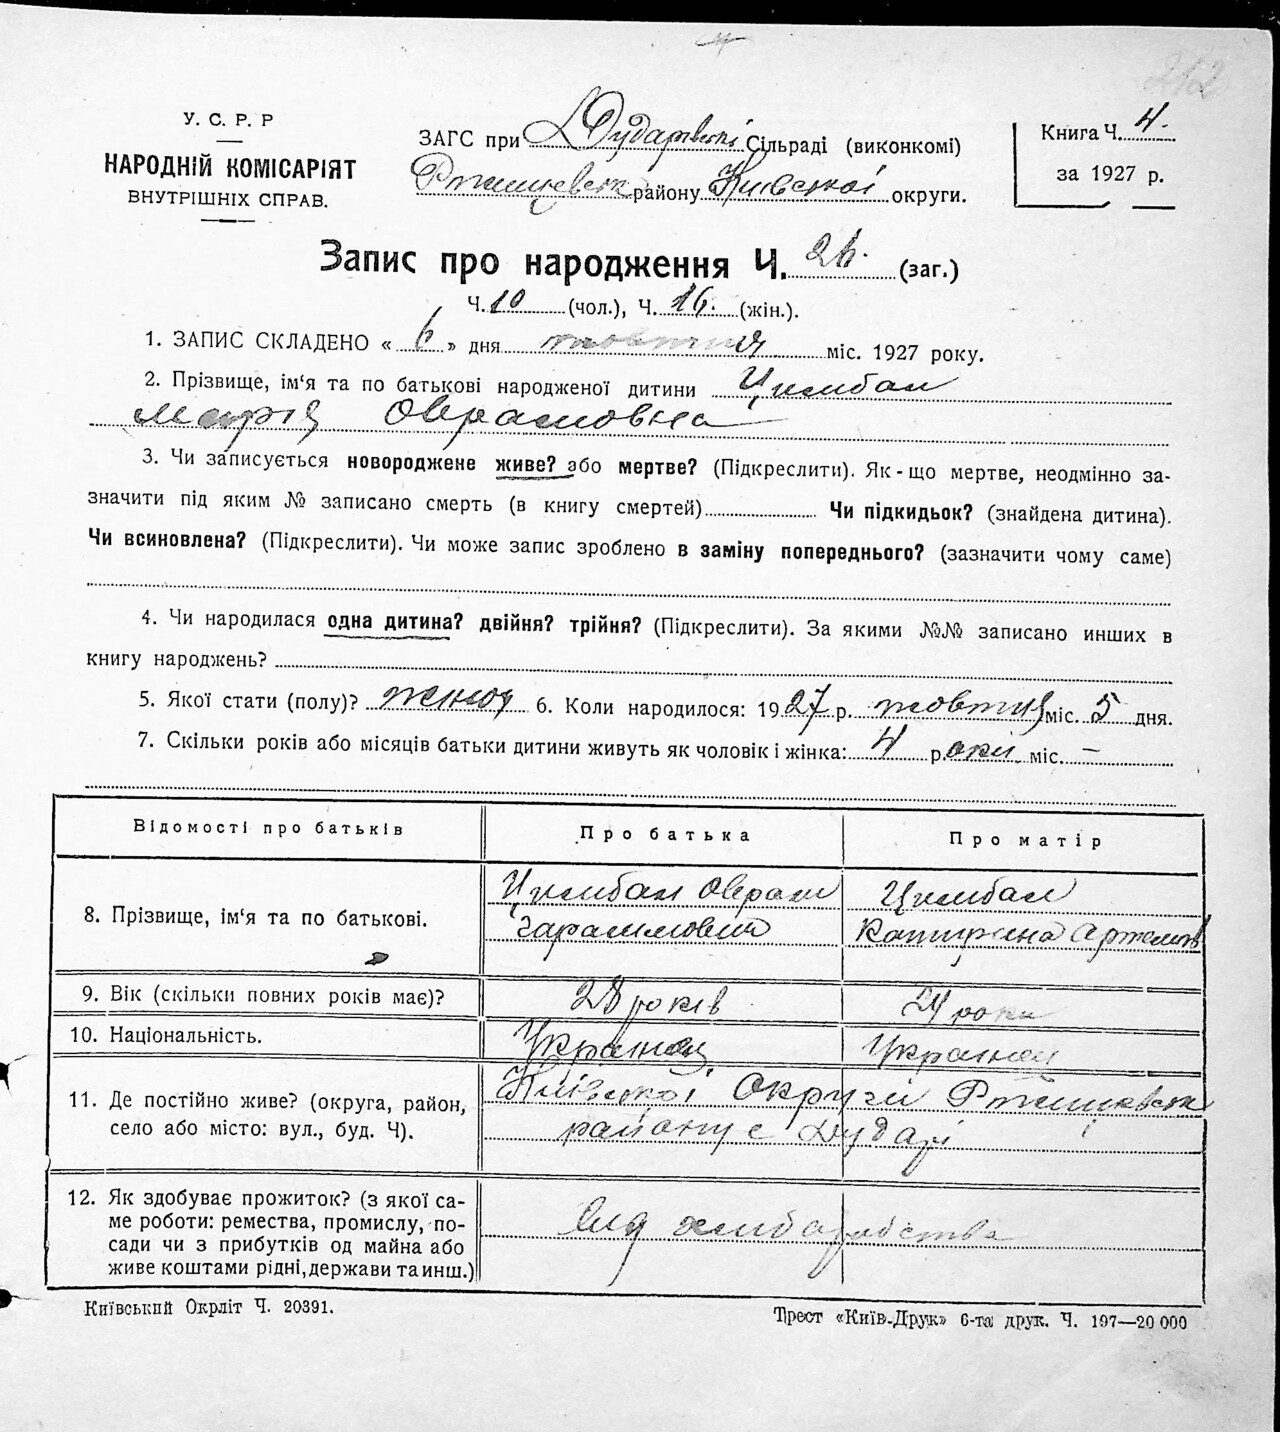 212
У. С. Р. Р
НАРОДНІЙ КОМІСАРІЯТ
ВНУТРІШНІХ СПРАВ.
ЗАГС при Дударівській Сільраді (виконкомі)
Ржищевськ району Київської округи.
Книга Ч. 4.
за 1927 р.
Запис про народження Ч. 26. (заг.)
Ч. 10 (чол.), Ч. 16. (жін.).
1. ЗАПИС СКЛАДЕНО « 6 » дня жовтня міс. 1927 року.
2. Прізвище, ім‘я та по батькові народженої дитини Цимбал
Марія Оврамовна
3. Чи записується новороджене живе? або мертве? (Підкреслити). Як-що мертве, неодмінно за-
значити під яким № записано смерть (в книгу смертей) Чи підкидьок? (знайдена дитина).
Чи всиновлена? (Підкреслити). Чи може запис зроблено в заміну попереднього? (зазначити чому саме)
4. Чи народилася одна дитина? двійня? трійня? (Підкреслити). За якими №№ записано инших в
книгу народжень?
5. Якої стати (полу)? жіноч 6. Коли народилося: 1927 р. жовтня міс. 5 дня.
7. Скільки років або місяців батьки дитини живуть як чоловік і жінка: 4 роки міс. —
Відомості про батьків Про батька Про матір
8. Прізвище, ім‘я та по батькові.
Цимбал Оврам
Цимбал
Катирина Артемів
9. Вік (скільки повних років має)? 28 років 24 роки
10. Національність. Українец Українец
11. Де постійно живе? (округа, район,
село або місто: вул., буд. Ч).
Київської Округи Ржищевськ
району с Дударі
12. Як здобуває прожиток? (з якої са-
ме роботи: ремества, промислу, по-
сади чи з прибутків од майна або
живе коштами рідні, держави та инш.)
Від хлиборобства
Київський Окрліт Ч. 20391.
Трест «Київ-Друк» 6-та друк. Ч. 197—20 000